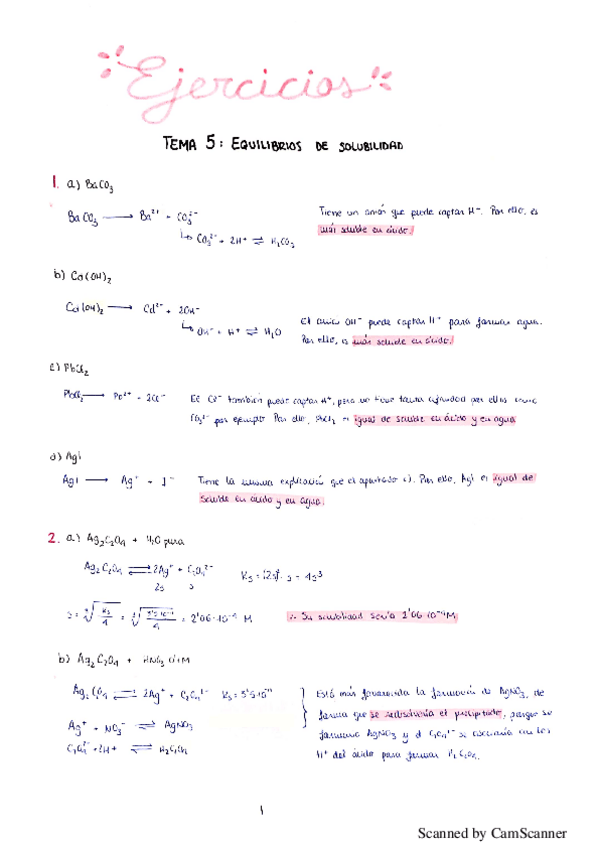 Ejercicios
TEMA 5: EQUILIBRIOS DE SOLUBILIDAD
1. a) BaCO₃
BaCO₃ ⟶ Ba²⁺ + CO₃²⁻
↳ CO₃²⁻ + 2H⁺ ⇌ H₂CO₃
Tiene un anión que puede captar H⁺. Por ello, es
más soluble en ácido.
b) Cd(OH)₂
Cd(OH)₂ ⟶ Cd²⁺ + 2OH⁻
↳ OH⁻ + H⁺ ⇌ H₂O
El anión OH⁻ puede captar H⁺ para formar agua.
Por ello, es más soluble en ácido.
c) PbCl₂
PbCl₂ ⟶ Pb²⁺ + 2Cl⁻
El Cl⁻ también puede captar H⁺, pero no tiene tanta afinidad por ellos como
CO₃²⁻ por ejemplo. Por ello, PbCl₂ es igual de soluble en ácido y en agua
d) AgI
AgI ⟶ Ag⁺ + I⁻
Tiene la misma explicación que el apartado c). Por ello, AgI es igual de
soluble en ácido y en agua.
2. a) Ag₂C₂O₄ + H₂O pura
Ag₂C₂O₄ ⇌ 2Ag⁺ + C₂O₄²⁻
2s s
Ks = (2s)² · s = 4s³
s = ∛(Ks/4) = = 2'06·10⁻⁴ M
∴ Su solubilidad sería 2'06·10⁻⁴ M
b) Ag₂C₂O₄ + HNO₃
⇌ 2Ag⁺ + C₂O₄²⁻ Ks =
Ag⁺ + NO₃⁻ ⇌ AgNO₃
C₂O₄²⁻ + 2H⁺ ⇌ H₂C₂O₄
Está más favorecida la formación de AgNO₃, de
forma que se redisolvería el precipitado, porque se
formaría AgNO₃ y el C₂O₄²⁻ se asociaría con los
H⁺ del ácido para formar H₂C₂O₄.
1
Scanned by CamScanner